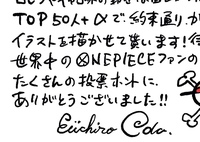 TOP50人+αで、約束通り、か
イラストを描かせて貰います!
世界中のONEPIECEファンの
たくさんの投票ホントに、
ありがとうございました!!
Eiichiro Oda.